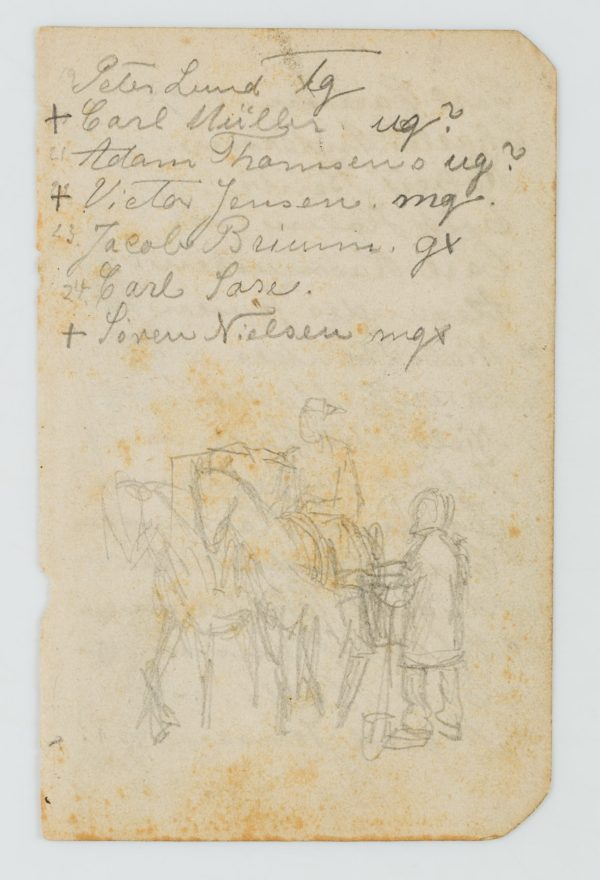 Peter Lund tg
+ Carl Müller. ug?
21 Adam Thomsen o ug?
+ Victor Jensen. mg.
23. Jacob Bruun. gx
24. Carl Sase.
+ Søren Nielsen mgx